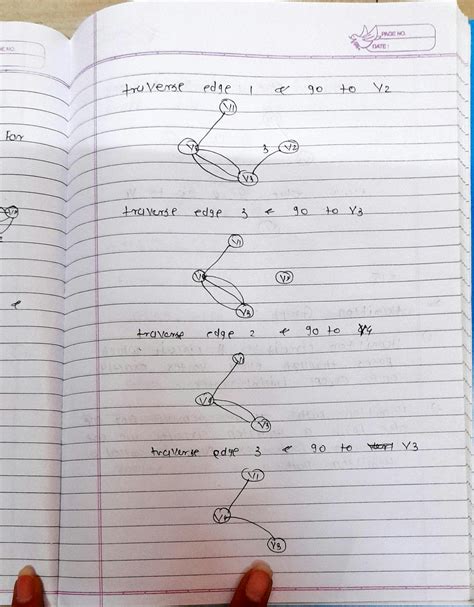 PAGE NO.
DATE:
traverse edge 1 & go to V2
V1
V4 3 V2
V3
For
traverse edge 3 & go to V3
V1
V4 V2
V3
traverse edge 2 & go to V4
V1
V4
V3
traverse edge 3 & go to V3
V1
V4
V3